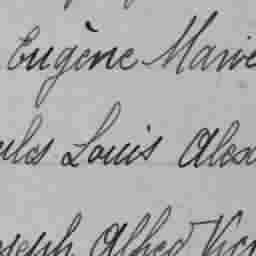 Eugène Marie
ules Louis Alex
oseph Alfred Vic